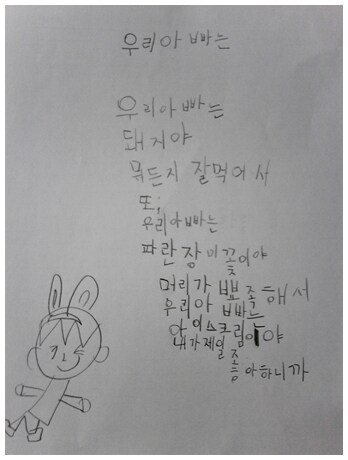 우리아빠는
우리아빠는
돼지야
뭐든지 잘먹어사
또;
우리아빠는
파란장미꽃이야
머리가 뾰족해서
우리아빠는
아이스크림이야
내가제일
좋아하니까